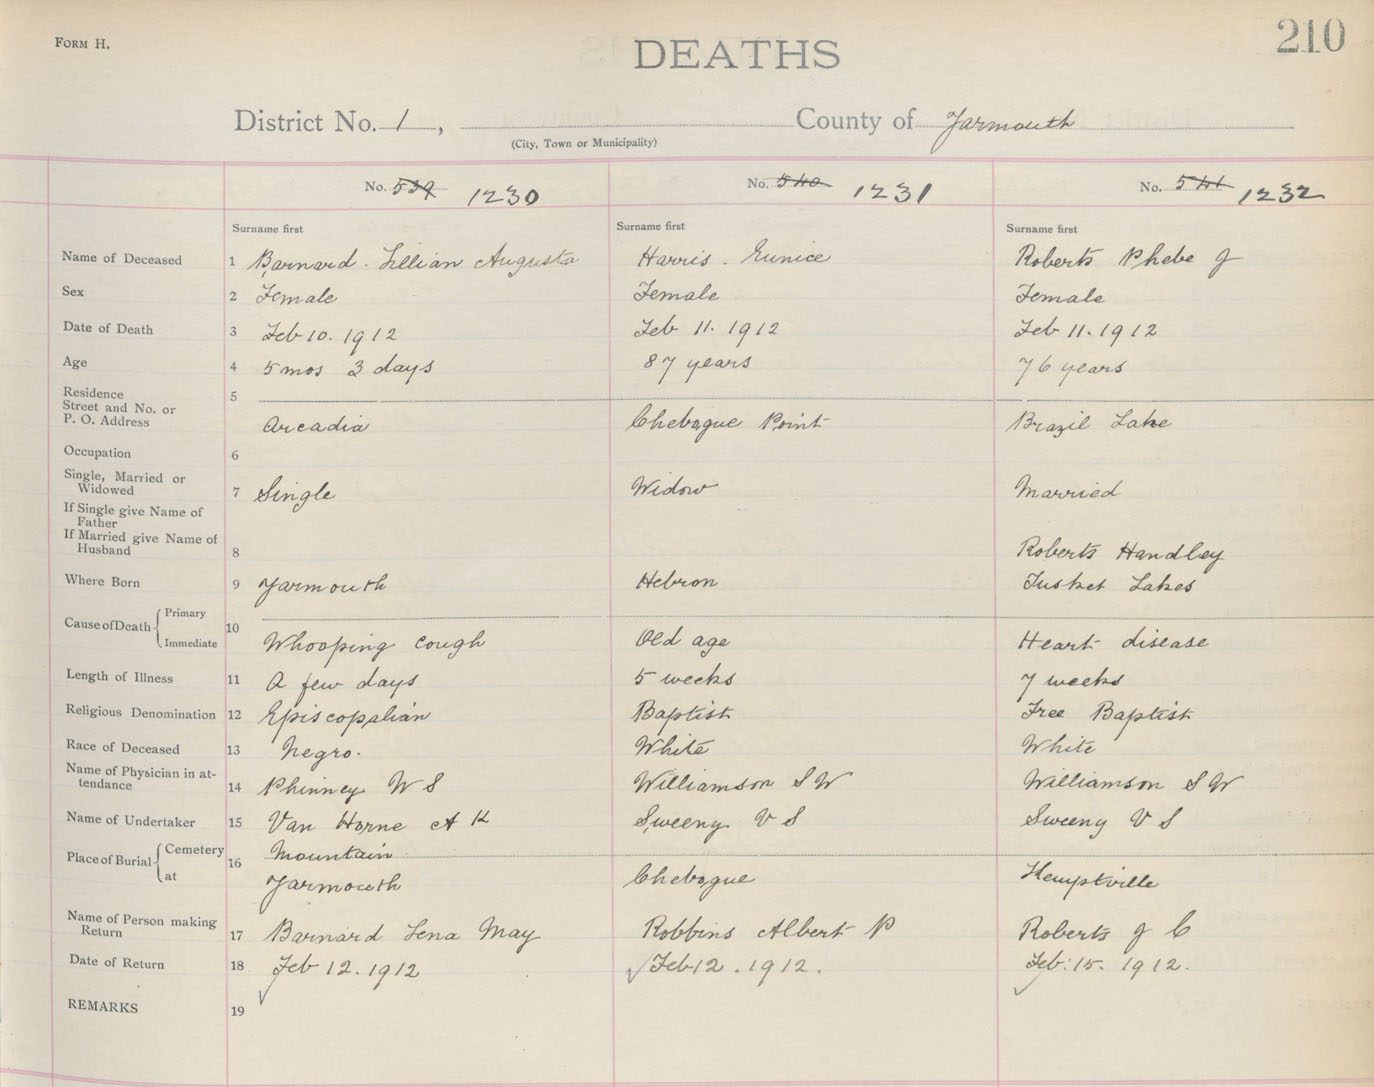 FORM H.
210
DEATHS
District No. 1, County of Yarmouth
(City, Town or Municipality)
No. 539 1230 No. 540 1231 No. 541 1232
Surname first Surname first Surname first
Name of Deceased 1 Barnard. Lillian Augusta Harris. Eunice Roberts Phebe J
Sex 2 Female Female Female
Date of Death 3 Feb 10. 1912 Feb 11. 1912 Feb 11. 1912
Age 4 5 mos 3 days 87 years 76 years
Residence 5
Street and No. or
P. O. Address Arcadia Chebogue Point Brazil Lake
Occupation 6
Single, Married or
Widowed 7 Single Widow Married
If Single give Name of
Father
If Married give Name of
Husband 8 Roberts Handley
Where Born 9 Yarmouth Hebron Tusket Lakes
Cause of Death Primary 10
Immediate Whooping cough Old age Heart disease
Length of Illness 11 A few days 5 weeks 7 weeks
Religious Denomination 12 Episcopalian Baptist Free Baptist
Race of Deceased 13 Negro. White White
Name of Physician in at-
tendance 14 Phinney W S Williamson S W Williamson S W
Name of Undertaker 15 Van Horne A K Sweeny V S Sweeny V S
Place of Burial Cemetery 16 Mountain
at Yarmouth Chebogue Kemptville
Name of Person making
Return 17 Barnard Lena May Robbins Albert P Roberts J C
Date of Return 18 Feb 12. 1912 Feb 12. 1912. Feb. 15. 1912.
REMARKS 19